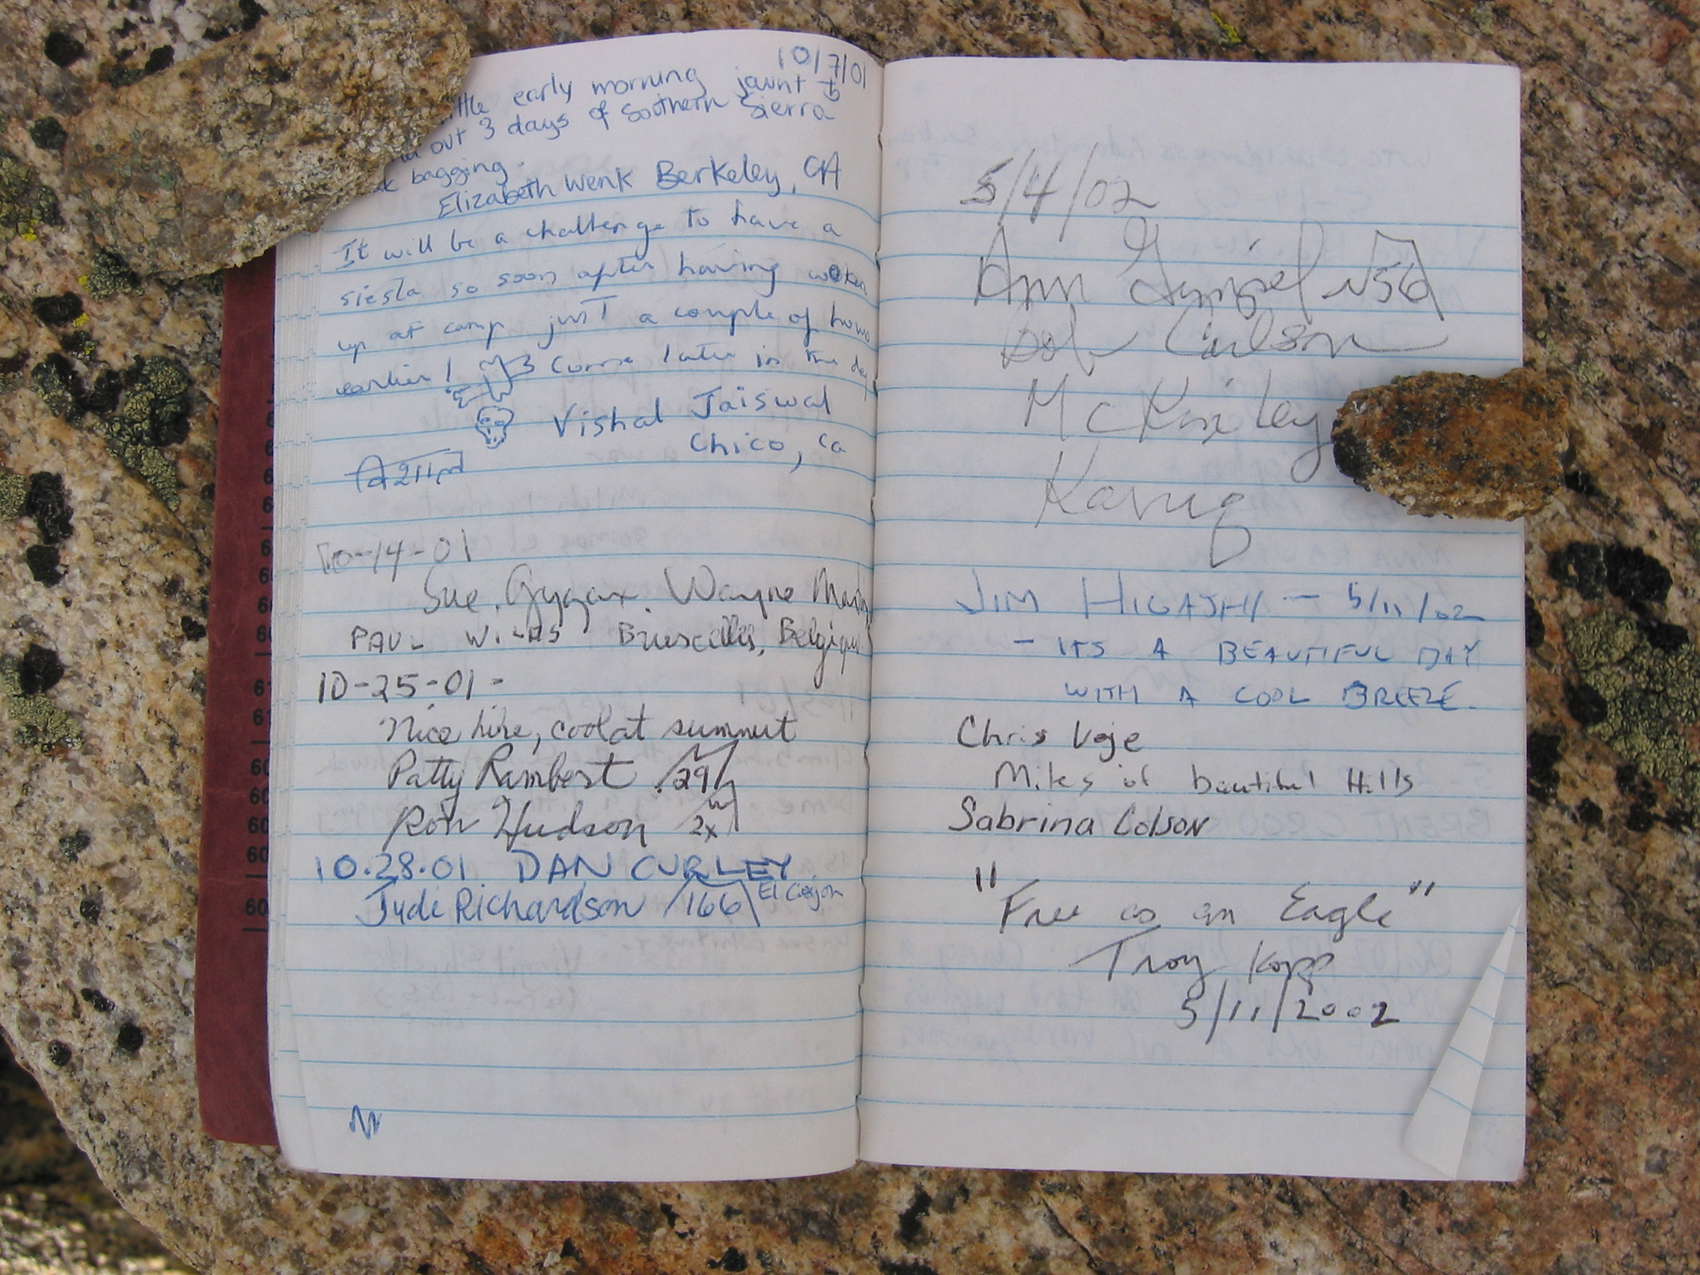 10/7/01
early morning jaunt to
out 3 days of Southern Sierra
bagging.
Elizabeth Wenk Berkeley, CA
It will be a challenge to have a
siesta so soon after having woken
up at camp just a couple of hours
earlier! Come later in the day
Vishal Jaiswal
Chico, Ca
211
10-14-01
Sue Gygax. Wayne
PAUL Bruxelles, Belgique
10-25-01-
Nice hike, cool at summit
Patty Rambert 29
Ron Hudson 2x
10.28.01 DAN CURLEY
Jude Richardson 166 El Cajon
5/4/02
Ann Gimpel ~56
Bob Carlson
McKinley
JIM HIGASHI - 5/11/02
- ITS A BEAUTIFUL DAY
WITH A COOL BREEZE.
Chris Voje
Miles of beautiful Hills
Sabrina Colson
"Free as an Eagle"
Troy Kopp
5/11/2002